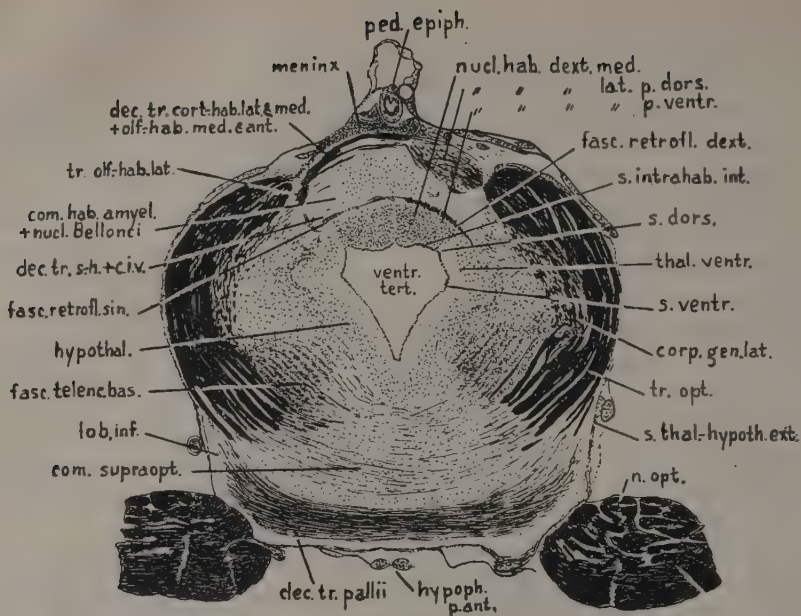 ped. epiph.
meninx
nucl. hab. dext. med.
" " " lat. p. dors.
" " " " p. ventr.
dec. tr. cort-hab. lat. & med.
+ olf-hab. med. & ant.
fasc. retrofl. dext.
tr. olf-hab. lat.
s. intrahab. int.
com. hab. amyel.
+ nucl. Bellonci
s. dors.
dec. tr. s-h. + c.i.v.
ventr.
tert.
thal. ventr.
fasc. retrofl. sin.
s. ventr.
hypothal.
corp. gen. lat.
fasc. telenc. bas.
tr. opt.
lob. inf.
s. thal-hypoth. ext.
com. supraopt.
n. opt.
dec. tr. pallii
hypoph.
p. ant.